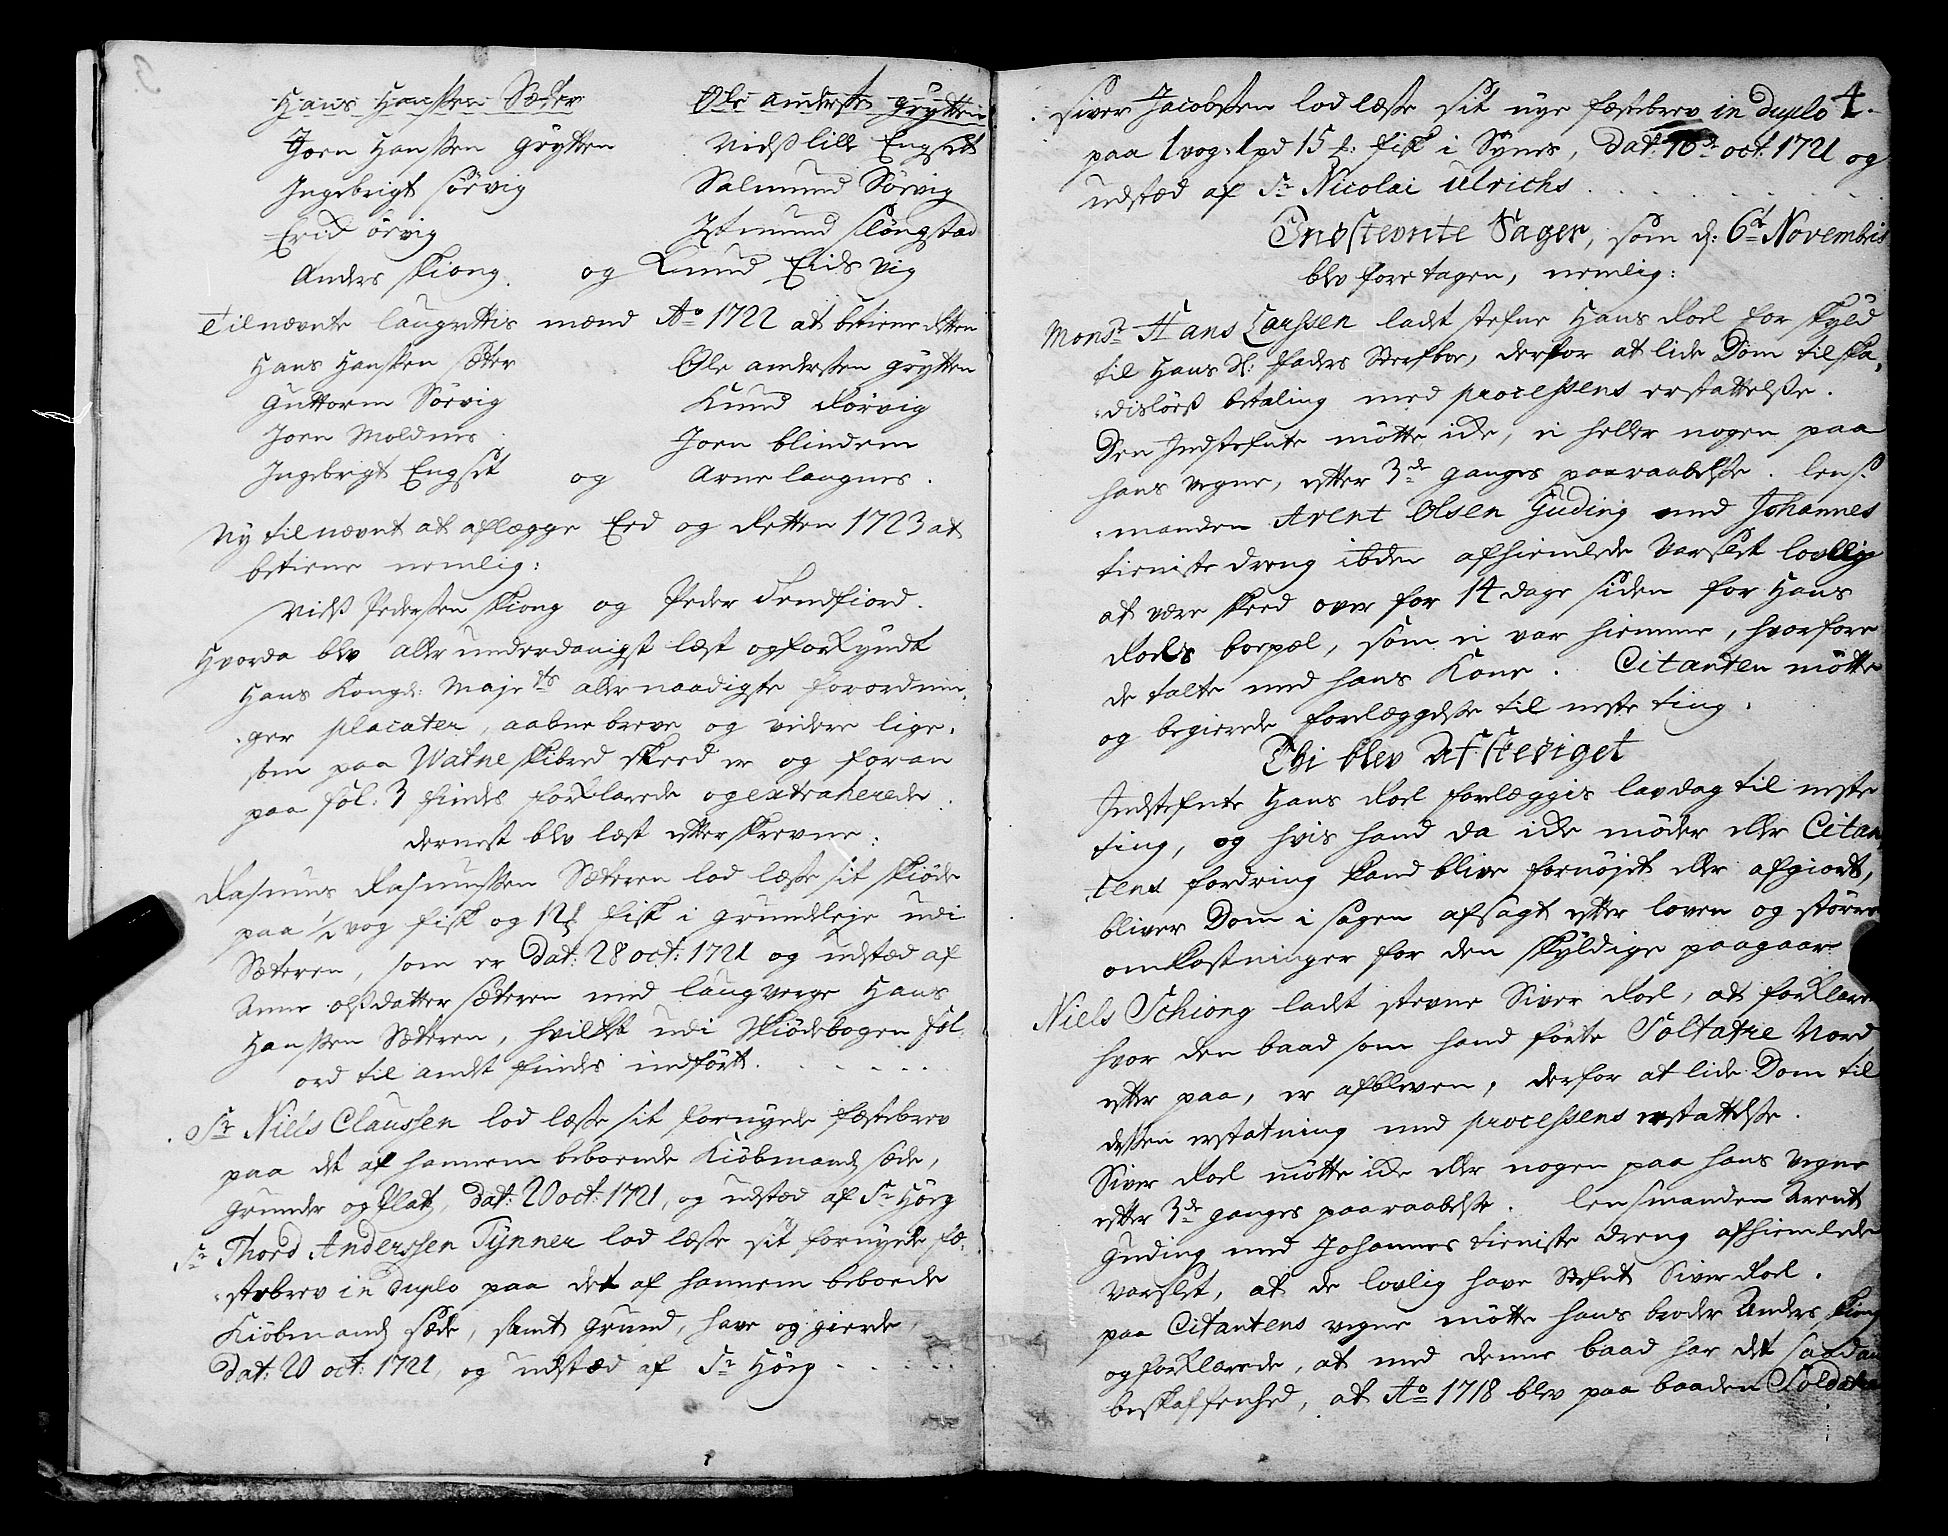 Hans Hanssen Sæter
Ole Anderss: Grytten
Joen Hanssen Grytten
Vidsß lille Engset
Ingebrigt Sörvig
Salmund Sörvig
Erich örvig
Istmund Slöngstad
Anders Skiong. og Knud Eidsvig
Tilnævnte laugrettis mænd Ao 1722 at betiene Retten
Hans Hanssen Sæter
Ole Anderssen Grytten
Guttorm Sörvig
Knud Rörvig
Joen Moldnes
Joen blindem
Ingebrigt Engset og
Arne laugnes.
Ny tilnævnt at aflægge Eed og Retten 1723 at
betiene nemlig:
Vidsß Pederssen Skiong og Peder Tendfiord.
Hvorda blev aller underdanigst læst og forkyndt
Hans Kongl: Majets allernaadigste forordnin-
ger placater, aabne breve og videre lige-
som paa Watne skibred skeed er og foran
paa fol: 3 findes forklarede og extraherede.
dernest blev læst efterskrevne:
Rasmus Rasmussen Sæteren lod læsse sit skiöde
paa ½ vog fisk og 12 ℔ fisk i grundleje udi
Sæteren, som er Dat: 28 oct: 1721 og udstæd af
Anne olsdatter Sæteren med laugverge Hans
Hanssen Sæteren, hvilket udi Skiödebogen fol.
ord til andet findes indfört.
Sr Niels Claussen lod læsse sit fornyede fæstebrev
paa det af hannem beboende Kiöbmand sæde,
Grunder og Plads, Dat: 20 oct: 1721, og udstæd af Sr Hörg
Sr Thord Anderssen Tynner lod læsse sit fornyede fæ-
stebrev in duplo paa det af hannem beboede
Kiöbmand sæde, samt grund, have og gierde,
Dat: 20 oct: 1721, og udstæd af Sr Hörg
4.
Siver Jacobssen lod læsse sit nye fæstebrev in duplo
paa 1 vog: 1 pd 15 ℔: fisk i Synes, Dat: 16de oct: 1721 og
udstæd af Sr Nicolai Ulrichs
Indstevnte Sager, som d: 6te Novembris
blev foretagen, nemlig:
Monsr Hans Carssen ladet stefne Hans Roel for skyld
til Hans Sl: faders Sterfboe, derfor at lide Dom til ska-
dislöess betaling med processens erstattelsse.
Den Indstefnte mötte icke, ei heller nogen paa
hans vegne, efter 3de ganges paaraabelsse. lens-
manden Arent Olsen Guding med Johannes
tieniste dreng ibden afhiemlede varslet lovlig
at være skeed over for 14 dage siden for Hans
Roels boepæl, som ei var hiemme, hvorfore
de talte med hans Kone. Citanten mötte
og begierede forelæggelsse til neste ting.
Thi blev Afskediget
Indstefnte Hans Roel forelæggis lavdag til neste
ting, og hvis hand da icke möder eller Citan-
tens fordring kand blive fornöjet eller afgiordt,
bliver Dom i sagen afsagt efter loven og större
omkostninger for den skyldige paagaar
Niels Schiong ladet stevne Siver Roel, at forklare
hvor den baad som hand förte Soltatre Nord
efter paa, er afbleven, derfor at lide Dom til
dessen erstatning med processens erstattelsse.
Siver Roel mötte icke eller nogen paa hans vegne
efter 3de ganges paaraabelsse. lensmanden Arent
Guding med Johannes tieniste dreng afhiemlede
varslet, at de lovlig have Stefnt Siver Roel.
paa Citantens vegne mötte hans broder Anders Skiong
og forklarede, at med denne baad har det saadan
beskaffenhed, at Ao 1718 blev paa baaden Soldater